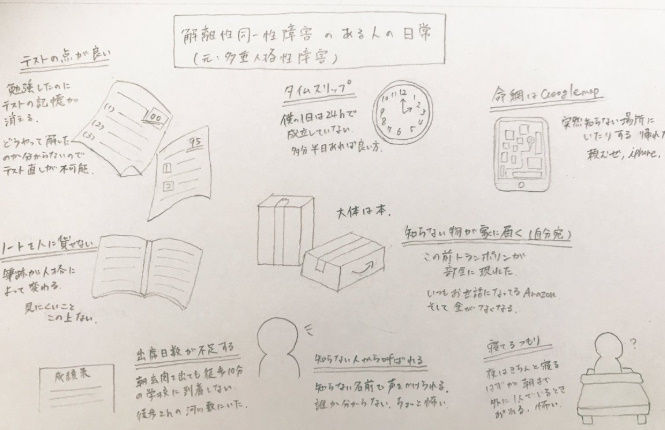 解離性同一性障害のある人の日常
(元・多重人格性障害)
テストの点が良い
勉強したのに
テストの記憶が
消える。
どうやって解いた
のか分からないので
テスト直しが不可能。
(1)
(2)
(3)
100
95
1
2
タイムスリップ
僕の1日は24hで
成立していない。
多分半日あれば良い方。
12
1
2
3
4
5
6
7
8
9
10
11
命綱はGooglemap
突然知らない場所に
いたりする 帰れ
頼むぜ, iphone.
ノートを人に貸せない
筆跡が人格に
よって変わる。
見にくいこと
この上ない。
大体は本.
知らない物が家に届く(自分宛)
この前トランポリンが
部屋に現れた.
いつもお世話になってるAmazon
そして金がなくなる.
出席日数が不足する
朝玄関を出ても徒歩10分
の学校に到着しない.
徒歩2hの河川敷にいた.
成績表
知らない人から呼ばれる
知らない名前で声をかけられる.
誰か分からない. ちょっと怖い
寝てるつもり
夜はきちんと寝る
はずが朝まで
外に1人でいるとき
がある. 怖い.
?